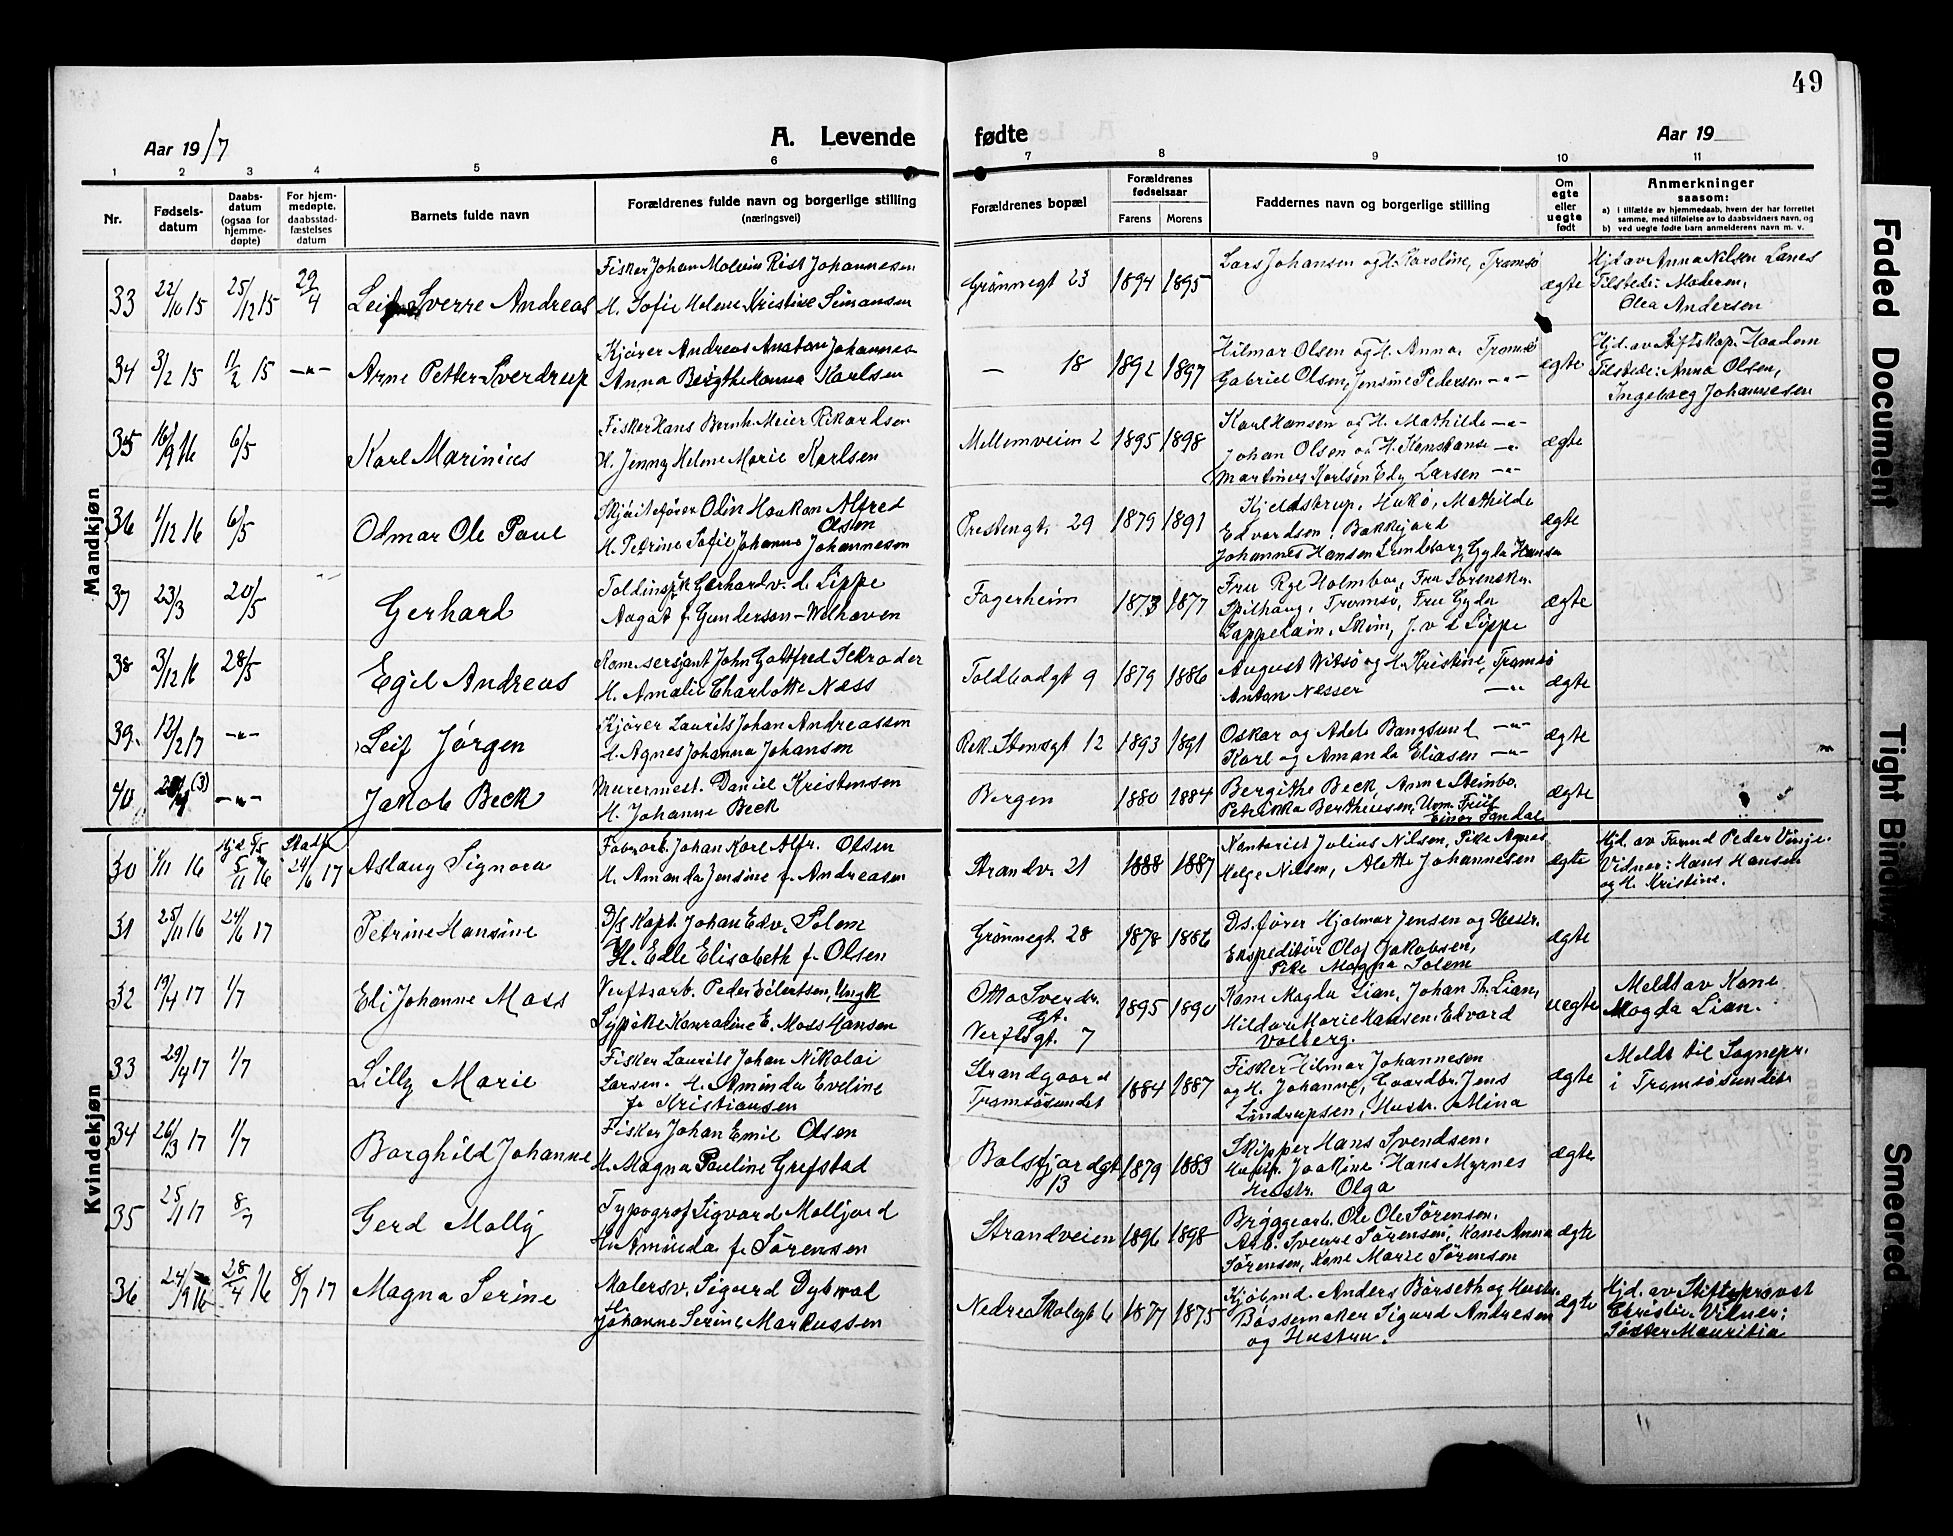 49
Aar 1917
A. Levende fødte
Aar 19
1 2 3 4 5 6 7 8 9 10 11
Nr.
Fødsels-
datum
Daabs-
datum
(ogsaa for
hjemme-
døpte)
For hjem-
medøpte,
daabsstad-
fæstelses
datum
Barnets fulde navn
Forældrenes fulde navn og borgerlige stilling
(næringsvei)
Forældrenes bopæl
Forældrenes
fødselsaar
Farens Morens
Faddernes navn og borgerlige stilling
Om
egte
eller
uegte
født
Anmerkninger
saasom:
a) i tilfælde av hjemmedaab, hvem der har forrettet
samme, med tilføielse av to daabsvidners navn, og
b) ved uegte fødte barn anmelderens navn m. v.
Mandkjøn
33 22/10 15 25/12 15 29/4 Leif Sverre Andreas
Fisker Johan Molvin Rist Johannesen
H. Sofie Helene Kristine Simonsen
Grønnegt 23 1894 1895
Lars Johansen og H. Karoline, Tromsø
ægte
Hjd av Anna Nilsen Lanes
Tilstede: Moderen,
Olea Andersen
34 3/2 15 11/2 15 -"- Arne Petter Sverdrup
Kjører Andreas Anaton Johannes
Anna Bergthe Hanna Karlsen
— 18 1892 1897
Hilmar Olsen og H. Anna, Tromsø
Gabriel Olsen, Jensine Pedersen -"-
ægte
Hjd. av Stiftskap. Haadem
Tilstede: Anna Olsen,
Ingeborg Johannesen
35 16/9 16 6/5 Karl Marinius
Fisker Hans Bernh. Meier Rikardsen
H. Jenny Helene Marie Karlsen
Mellemveien 2 1895 1898
Karl Hansen og H. Mathilde -"-
Johan Olsen og H. Konstanse -"-
Martines Karlsen Edy Larsen -"-
ægte
36 1/12 16 6/5 Odmar Ole Paul
Skjøitefører Odin Haakon Alfred
Olsen
H. Petrine Sofie Johanne Johannesen
Prestengt. 29 1879 1891
Kjeldstrup, Hakø, Mathilde
Edvardsen, Bakkejord
Johannes Hansen Lundeborg Gyda Hansen
ægte
37 23/3 20/5 Gerhard
Toldinsp.k Gerhard v. d. Lippe
Aagot f. Gundersen-Welhaven
Fagerheim 1873 1877
Fru Rye Holmboe, Fru Sorenskr.
Spilhaug, Tromsø, Fru Gyda
Cappelain, Skim, J. v d Lippe
ægte
38 3/12 16 28/5 Egil Andreas
Rom. sersjant John Gottfred Schrøder
H. Amalie Charlotte Næss
Toldbodgt 9 1879 1886
August Vitsø og H. Kristine, Tromsø
Anton Nesser -"-
ægte
39. 12/2 17 -"- Leif Jørgen
Kjører Laurits Johan Andreassen
H. Agnes Johanna Johansen
Rek. Stensgt 12 1893 1891
Oskar og Adele Bangsund -"-
Karl og Amanda Eliasen -"-
ægte
40 (3) -"- Jakob Beck
Murermest. Daniel Kristensen
H. Johanne Beck
Bergen 1880 1884
Bergithe Beck, Anna Steinbo,
Petrikka Bertheussen,
Einar Sandal
ægte
Kvindekjøn
Hjd. Stadf.
30 1/11 16 5/11 16 24/6 17 Aslaug Signora
Fabrarb. Johan Karl Alfr. Olsen
H. Amanda Jensine f. Andreasen
Strandv. 21 1888 1887
Kontorist Julius Nilsen, Pike Agnes
Helge Nilsen, Alette Johannesen
ægte
Hjd. av Jormd Peder Vinje.
Vidner: Hans Hansen
og H. Kristine.
31 25/11 16 24/6 17 Petrine Hansine
D/s Kapt. Johan Edv. Solem
H. Edle Elisabeth f. Olsen
Grønnegt. 28 1878 1886
Ds. fører Hjalmar Jensen og Hustr.
Ekspeditør Olaf Jakobsen,
Pike Magna Solem
ægte
32 19/4 17 1/7 Eli Johanne Moss
Verftsarb. Peder Eilertsen, Ungk
Sypike Konradine E. Moss Hansen
Otto Sverdr.
gt.
Verftsgt. 7 1895 1890
Kone Magda Lian, Johan Th. Lian,
Hildur Marie Hansen. Edvard
Volberg.
uegte
Meldt av Kone
Magda Lian.
33 29/4 17 1/7 Lilly Marie
Fisker Laurits Johan Nikolai
Larsen. H. Aminda Eveline
f. Kristiansen
Strandgaard
Tromsøsundet 1884 1887
Fisker Hilmar Johannesen
og H. Johanne, Gaardbr. Jens
Lindrupsen, Hustr. Mina
ægte
Meldt til Sognepr.
i Tromsøsundet
34 26/3 17 1/7 Borghild Johanne
Fisker Johan Emil Olsen
H. Magna Pauline Grefstad
Balsfjordgt
13 1879 1883
Skipper Hans Svendsen.
Joakine Hans Myrnes
Hustr. Olga
ægte
35 25/1 17 8/7 Gerd Molly
Typograf Sigvard Molljord
H. Aminda f. Sørensen
Strandveien 1896 1898
Bryggearb. Ole Ole Sørensen.
Arb. Sverre Sørensen, Kone Anna
Sørensen, Kone Marie Sørensen
ægte
36 24/9 16 28/4 16 8/7 17 Magna Serine
Malersv. Sigurd Dybvad
H.
Johanne Serine Markussen
Nedre Skolegt 6 1877 1875
Kjøbmd. Anders Børseth og Hustr.
Bøssemaker Sigurd Andresen
og Hustru.
ægte
Hjd. av Stiftsprovst
Christie. Vidner:
Søster Mauritia
Faded Document
Tight Binding
Smeared